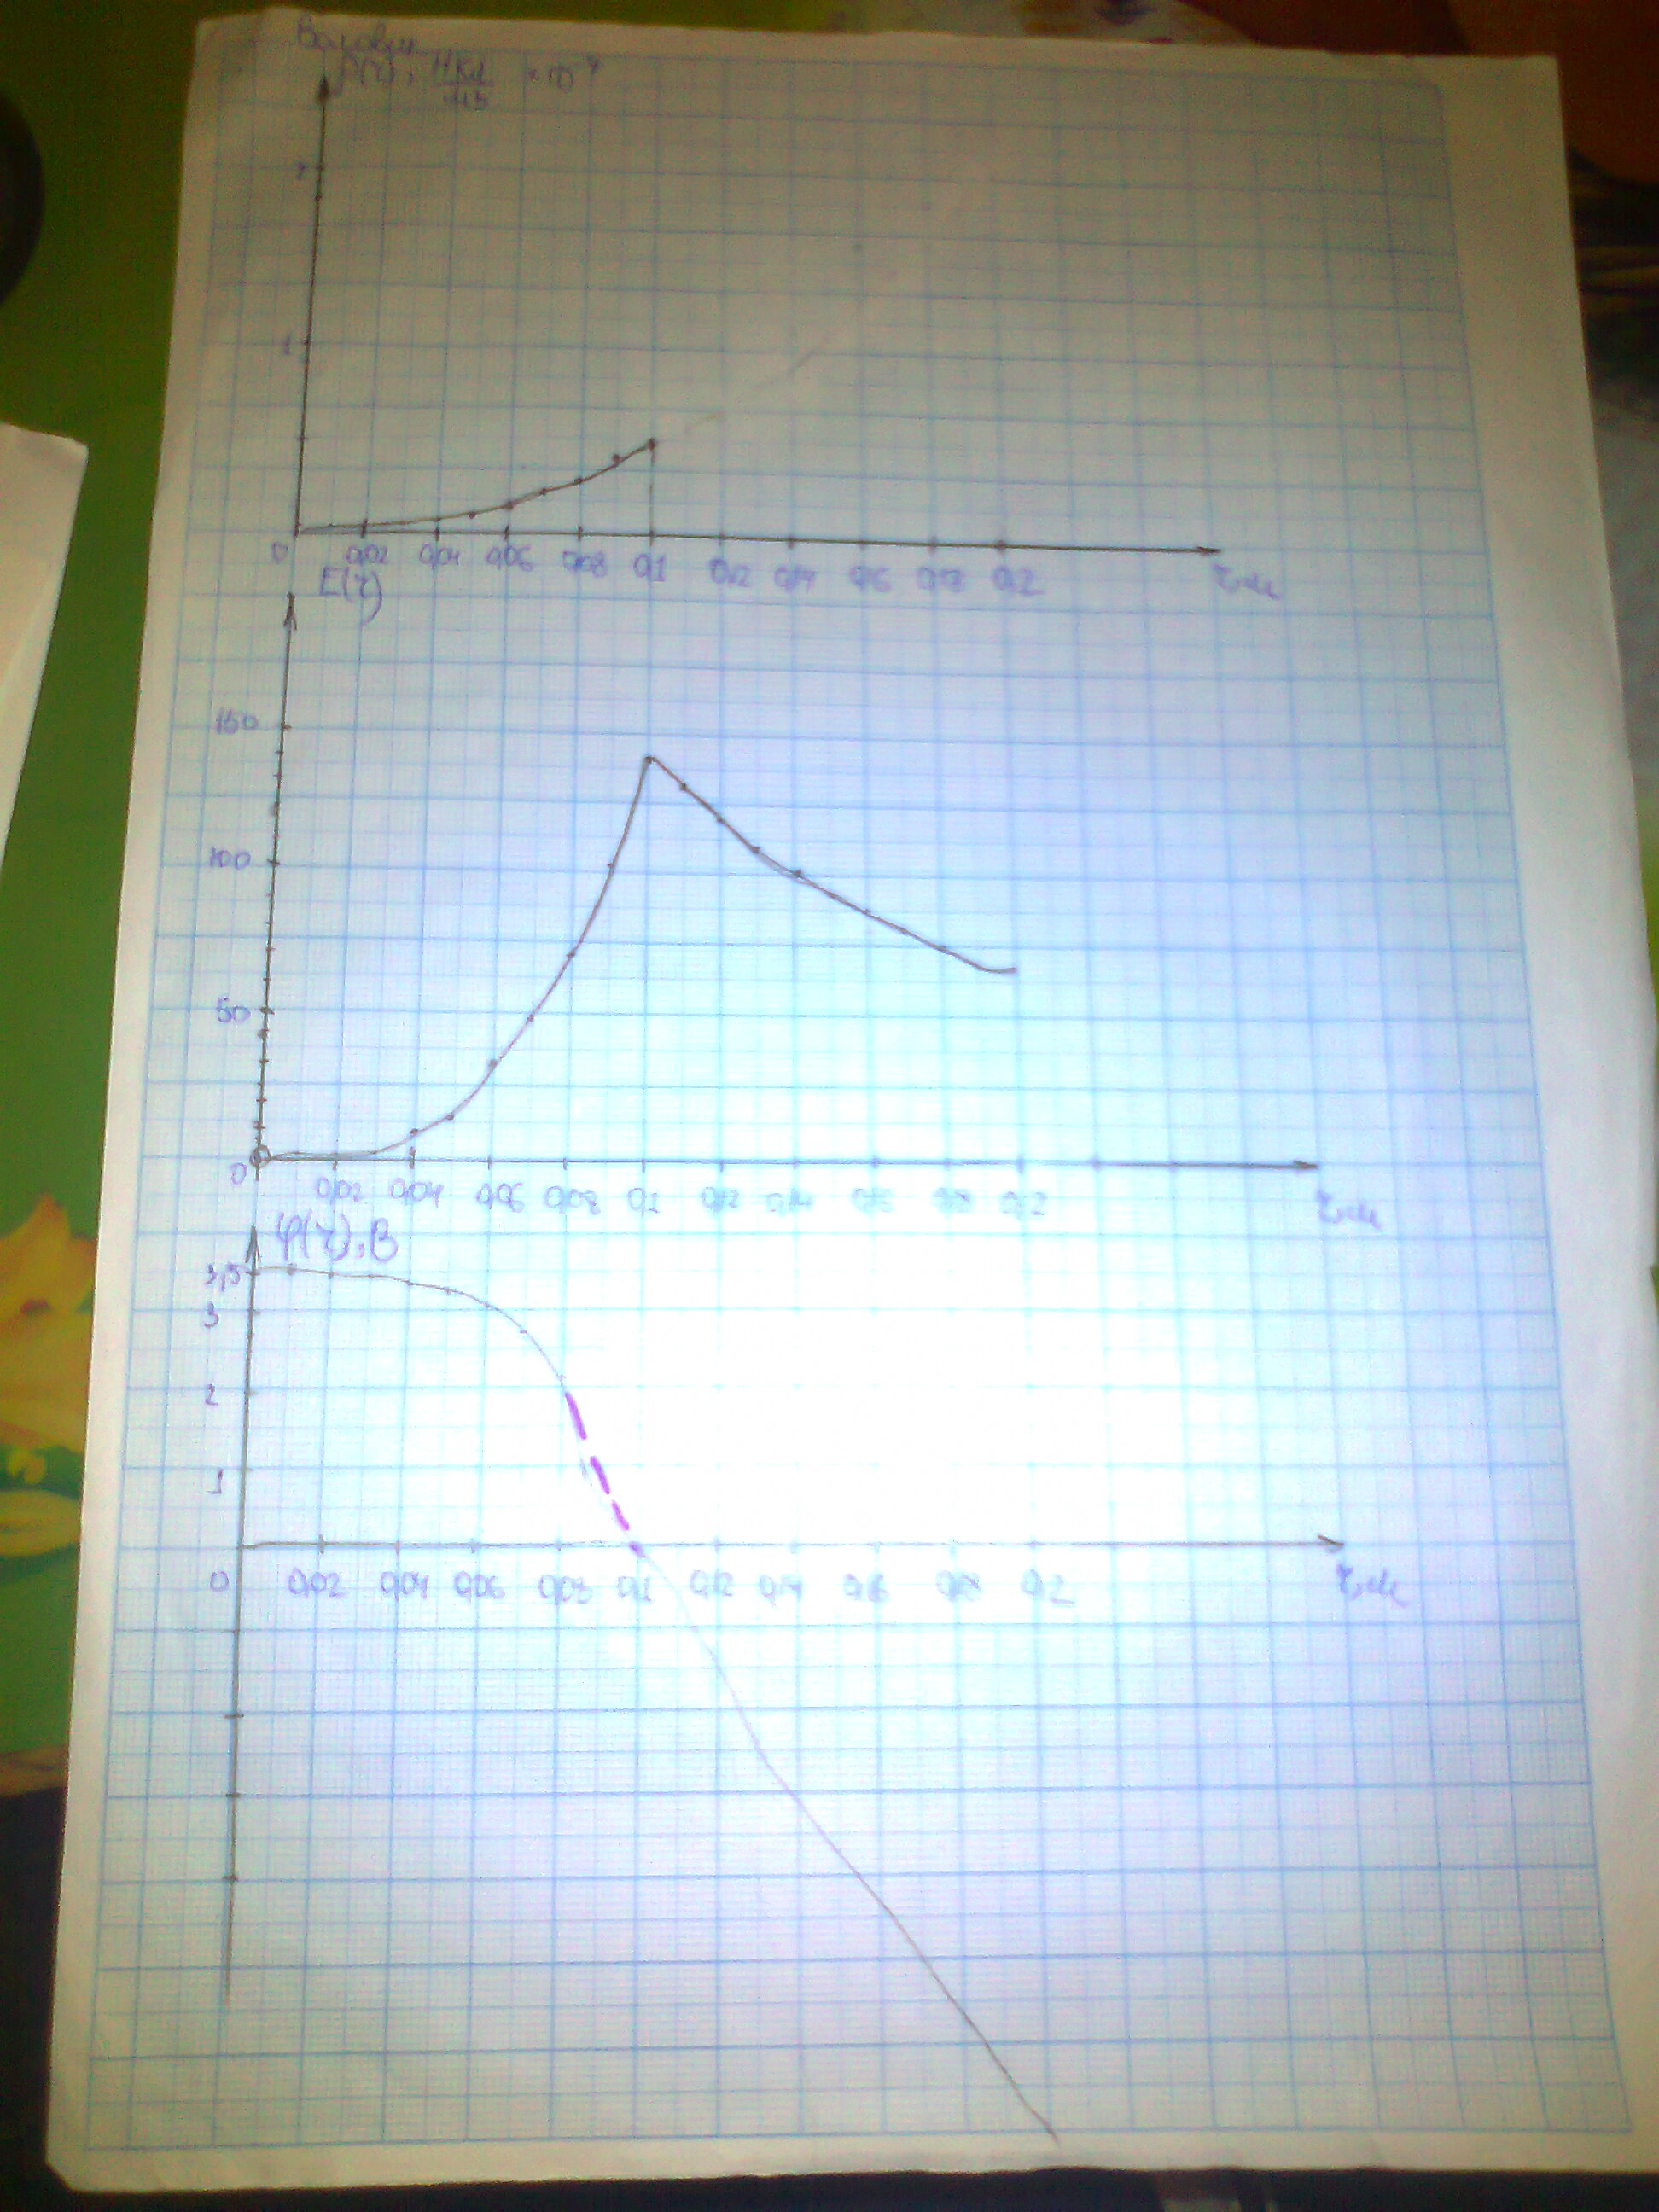 ρ(r), НКл/м3 ×10
2
1
0 0,02 0,04 0,06 0,08 0,1 0,12 0,14 0,16 0,18 0,2 r, м
E(r)
150
100
50
0 0,02 0,04 0,06 0,08 0,1 0,12 0,14 0,16 0,18 0,2 r, м
φ(r), В
3,5
3
2
1
0 0,02 0,04 0,06 0,08 0,1 0,12 0,14 0,16 0,18 0,2 r, м